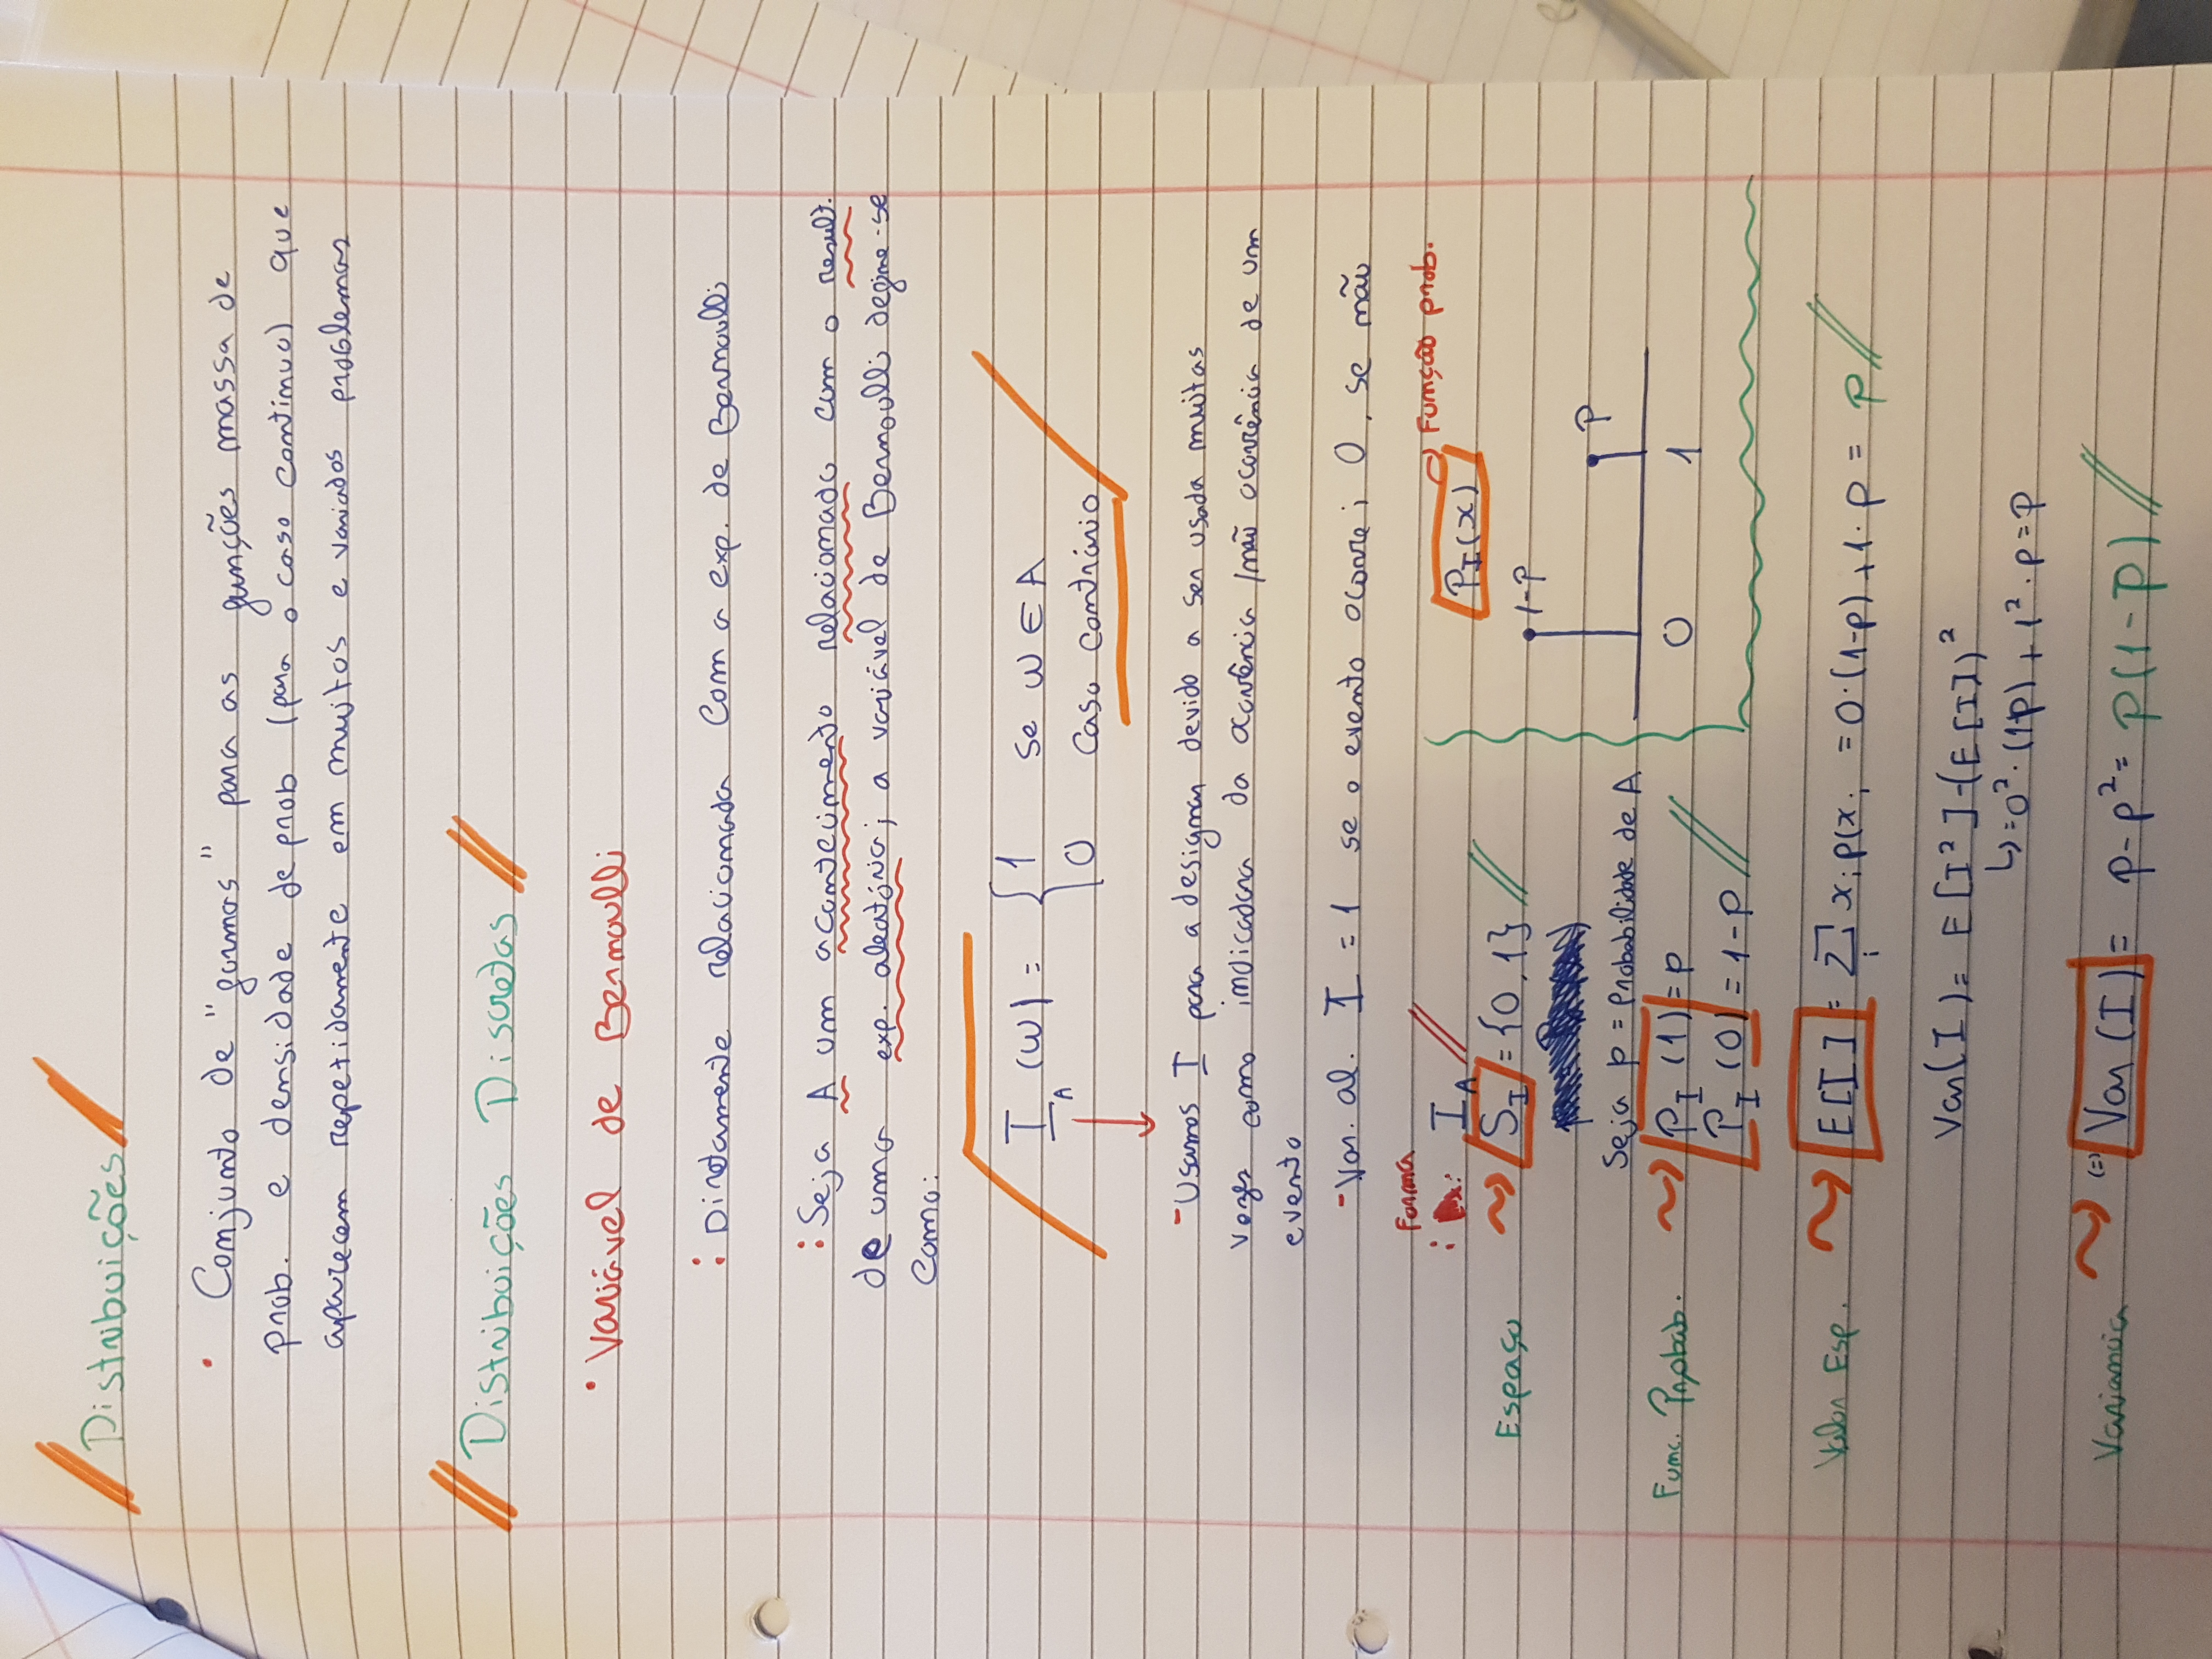 Distribuições
• Conjunto de "formas" para as funções massa de
prob. e densidade de prob (para o caso contínuo) que
aparecem repetidamente em muitos e variados problemas
Distribuições Discretas
• Variável de Bernoulli
: Diretamente relacionada com a exp. de Bernoulli
: Seja A um acontecimento relacionado com o result.
de uma exp. aleatória; a variável de Bernoulli define-se
como:
I_A (w) = { 1 se w ∈ A
0 caso contrário
- Usamos I para a designar devido a ser usada muitas
vezes como indicadora da ocorrência / não ocorrência de um
evento
- Var. al. I = 1 se o evento ocorre; 0, se não
Forma
: I_A
Espaço S_I = {0, 1}
Seja p = probabilidade de A
Func. Probab. P_I (1) = p
P_I (0) = 1 - p
Função prob.
P_I(x)
1-p
p
0 1
Valor Esp. E[I] = Σ_i x_i p(x_i = 0·(1-p) + 1·p = p
Var(I) = E[I²] - (E[I])²
↳ = 0²·(1-p) + 1²·p = p
Variancia (=) Var(I) = p - p² = p(1-p)